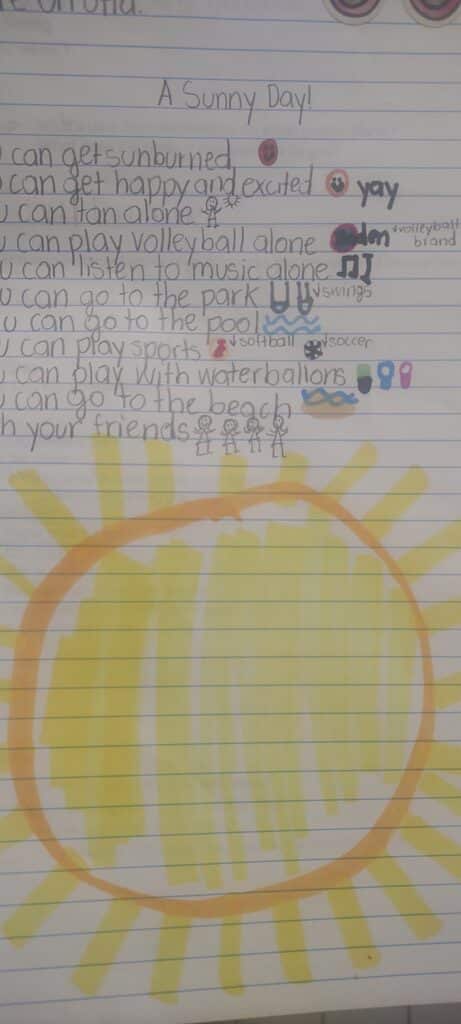 A Sunny Day!
can get sunburned
can get happy and excited yay
u can tan alone
u can play volleyball alone volleyball brand
u can listen to music alone
u can go to the park swings
u can go to the pool
u can play sports softball soccer
u can play with waterballons
u can go to the beach
h your friends